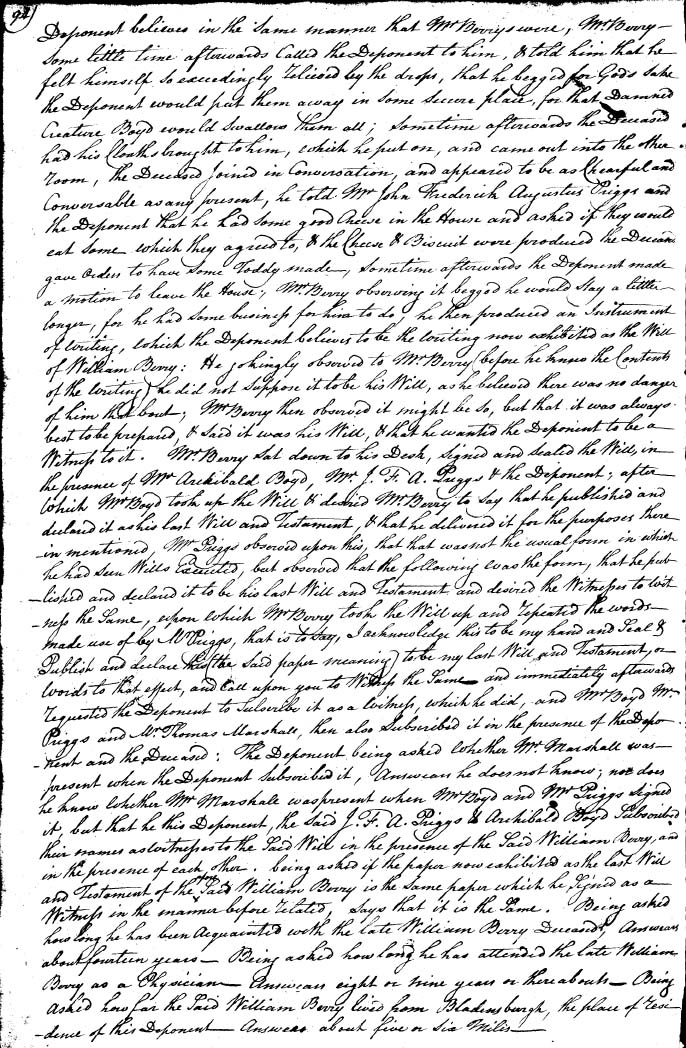 94
Deponent believes in the same manner that Mr Berrys were, Mr Berry
some little time afterwards Called the Deponent to him, & told him that he
felt himself so exceedingly relieved by the drops, that he begged for Gods sake
the Deponent would put them away in some secure place, for that Damned
Creature Boyd would swallow them all; sometime afterwards the Deceased
had his Cloaths brought to him, which he put on, and came out into the other
room, the Deceased joined in Conversation, and appeared to be as Chearful and
Conversable as any present, he told Mr John Frederick Augustus Priggs and
the Deponent that he had some good Cheese in the House and asked if they would
eat some which they agreed to, & the Cheese & Biscuit were produced the Deceased
gave Orders to have some Toddy made, sometime afterwards the Deponent made
a motion to leave the House; Mr Berry observing it begged he would stay a little
longer, for he had some business for him to do, he then produced an Instrument
of writing, which the Deponent believes to be the writing now exhibited as the Will
of William Berry: He jokingly observed to Mr Berry (before he knew the Contents
of the writing) he did not suppose it to be his Will, as he believed there was no danger
of him that bout; Mr Berry then observed it might be so, but that it was always
best to be prepared, & said it was his Will, & that he wanted the Deponent to be a
Witness to it. Mr Berry sat down to his Desk, signed and sealed the Will, in
the presence of Mr Archibald Boyd, Mr J. F. A. Priggs & the Deponent; after
which Mr Boyd took up the Will & desired Mr Berry to say that he published and
declared it as his last Will and Testament, & that he delivered it for the purposes there
-in mentioned, Mr Priggs observed upon this, that that was not the usual form in which
he had seen Wills Executed, but observed that the following was the form, that he pub
-lished and declared it to be his last Will and Testament and desired the Witnesses to wit
-ness the Same, upon which Mr Berry took the Will up and repeated the words
made use of by Mr Priggs, that is to say, I acknowledge this to be my hand and Seal &
Publish and declare this (the said paper meaning) to be my last Will and Testament, or
words to that effect, and Call upon you to Witness the Same and immediately afterwards
requested the Deponent to subscribe it as a witness, which he did, and Mr Boyd Mr
Priggs and Mr Thomas Marshall, then also Subscribed it in the presence of the Depo
-nent and the Deceased: The Deponent being asked whether Mr Marshall was
present when the Deponent subscribed it, Answears he does not know; nor does
he know whether Mr Marshall was present when Mr Boyd and Mr Priggs signed
it, but that he this Deponent, the said J. F. A. Priggs & Archibald Boyd Subscribed
their names as witnesses to the said Will in the presence of the Said William Berry, and
in the presence of each other. being asked if the paper now exhibited as the last Will
and Testament of the Said William Berry is the same paper which he Signed as a
Witness in the manner before related, Says that it is the Same. Being asked
how long he has been Acquainted with the late William Berry Deceased, Answears
about fourteen years Being asked how long he has attended the late William
Berry as a Physician Answears eight or nine years or thereabouts Being
asked how far the Said William Berry lived from Bladensburgh, the place of resi
-dence of this Deponent Answears about five or six Miles